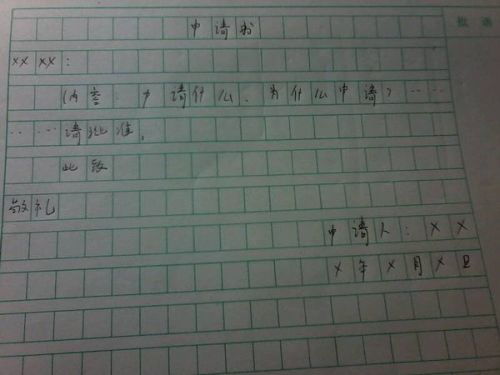 申请书
XX XX：
（内容：申请什么、为什么申请？……
……请批准。
此致
敬礼
申请人：X X
X 年 X 月 X 日